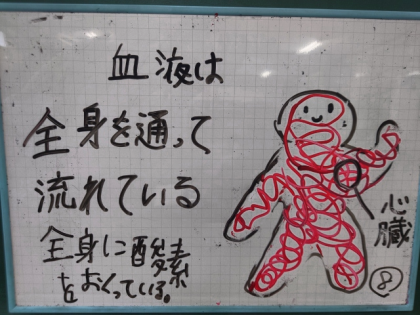 血液は
全身を通って
流れている
全身に酸素
をおくっている。
心臓
⑧